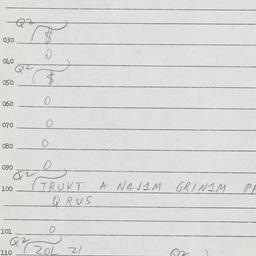 Q2
030 $
0
040
Q2
050 $
060 0
070 0
080 0
090 0
Q2
100 TRUKT A NAJIM GRINIM PA
QRUS
101 0
Q2
110 ZOL ZI Q2